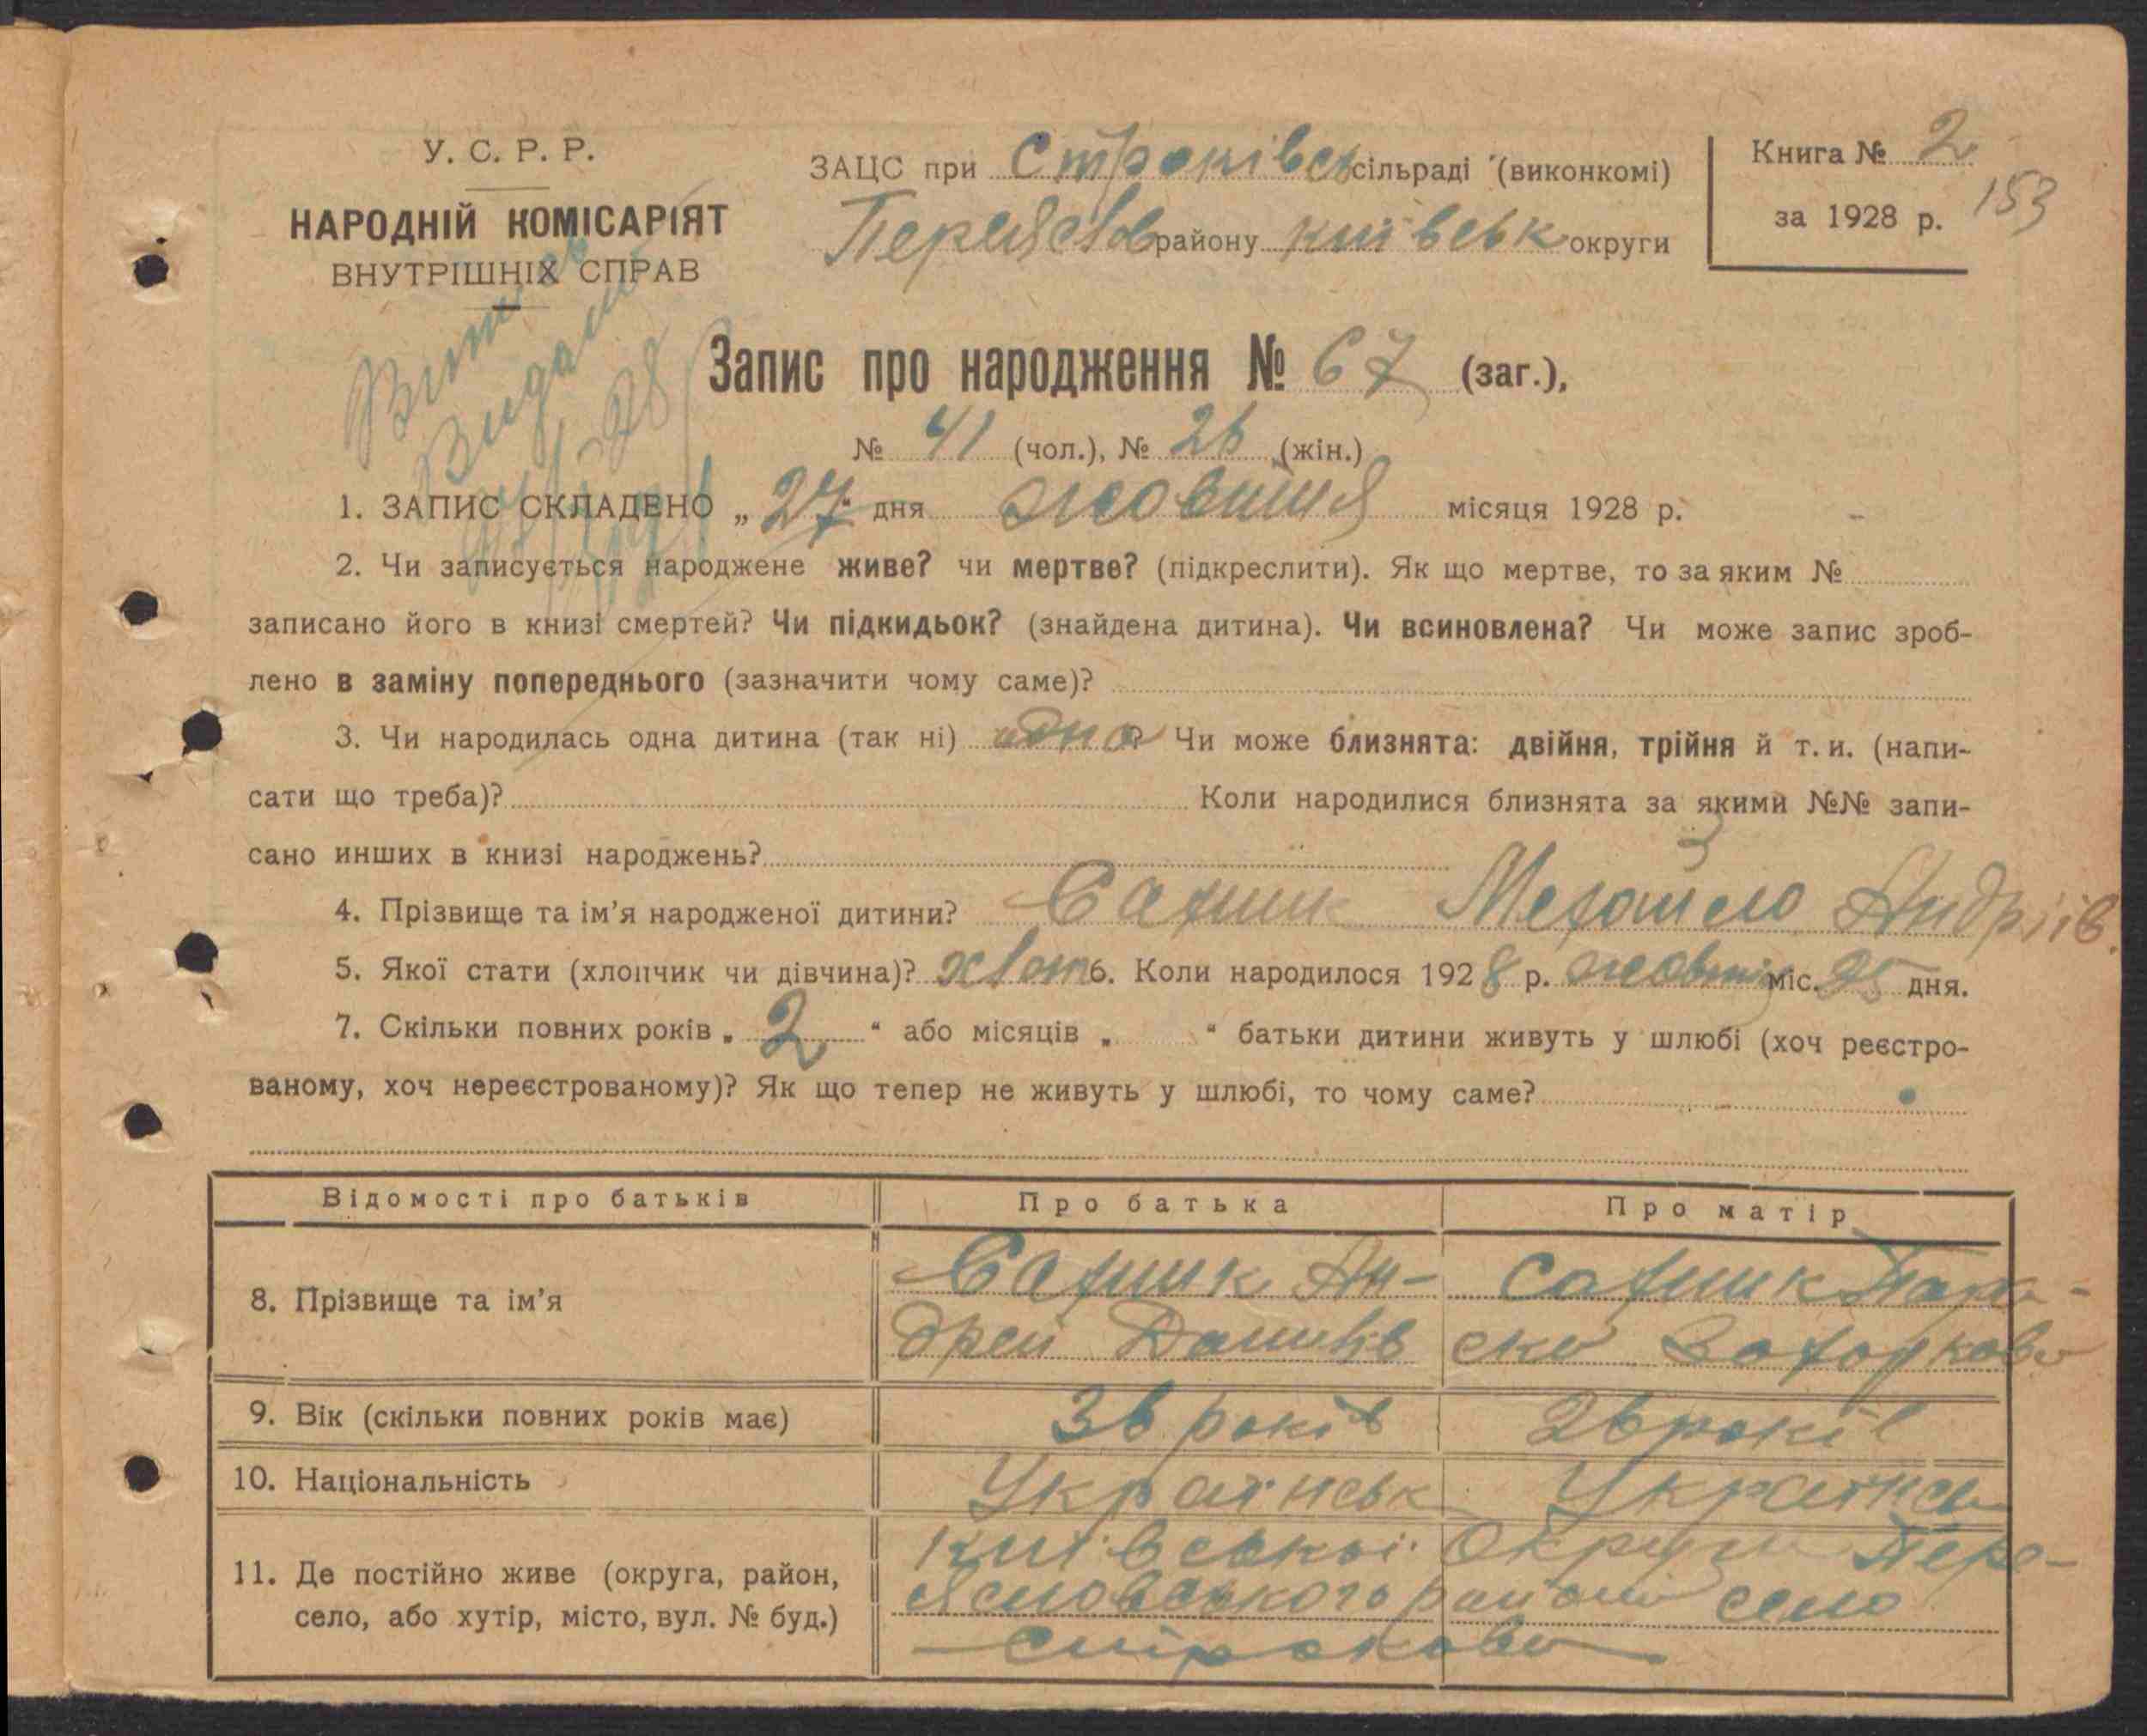 У. С. Р. Р.
НАРОДНІЙ КОМІСАРІЯТ
ВНУТРІШНІХ СПРАВ
ЗАЦС при Строківсь сільраді (виконкомі)
району київськ округи
Книга № 2
за 1928 р.
153
Запис про народження № 67 (заг.),
№ 41 (чол.), № 26 (жін.)
1. ЗАПИС СКЛАДЕНО „27“ дня жовтня місяця 1928 р.
2. Чи записується народжене живе? чи мертве? (підкреслити). Як що мертве, то за яким №
записано його в книзі смертей? Чи підкидьок? (знайдена дитина). Чи всиновлена? Чи може запис зроб-
лено в заміну попереднього (зазначити чому саме)?
3. Чи народилась одна дитина (так ні) одна Чи може близнята: двійня, трійня й т. и. (напи-
сати що треба)? Коли народилися близнята за якими №№ запи-
сано инших в книзі народжень?
4. Прізвище та ім’я народженої дитини? Андріїв.
5. Якої стати (хлопчик чи дівчина)? 6. Коли народилося 1928 р. міс. 25 дня.
7. Скільки повних років „ 2 “ або місяців „ “ батьки дитини живуть у шлюбі (хоч реєстро-
ваному, хоч нереєстрованому)? Як що тепер не живуть у шлюбі, то чому саме?
Відомості про батьків Про батька Про матір
8. Прізвище та ім’я Ан- Пара-
дрей ска
9. Вік (скільки повних років має) 36 років 26 років
10. Національність Українськ Українсь
11. Де постійно живе (округа, район, київської округи Пере-
село, або хутір, місто, вул. № буд.) району село